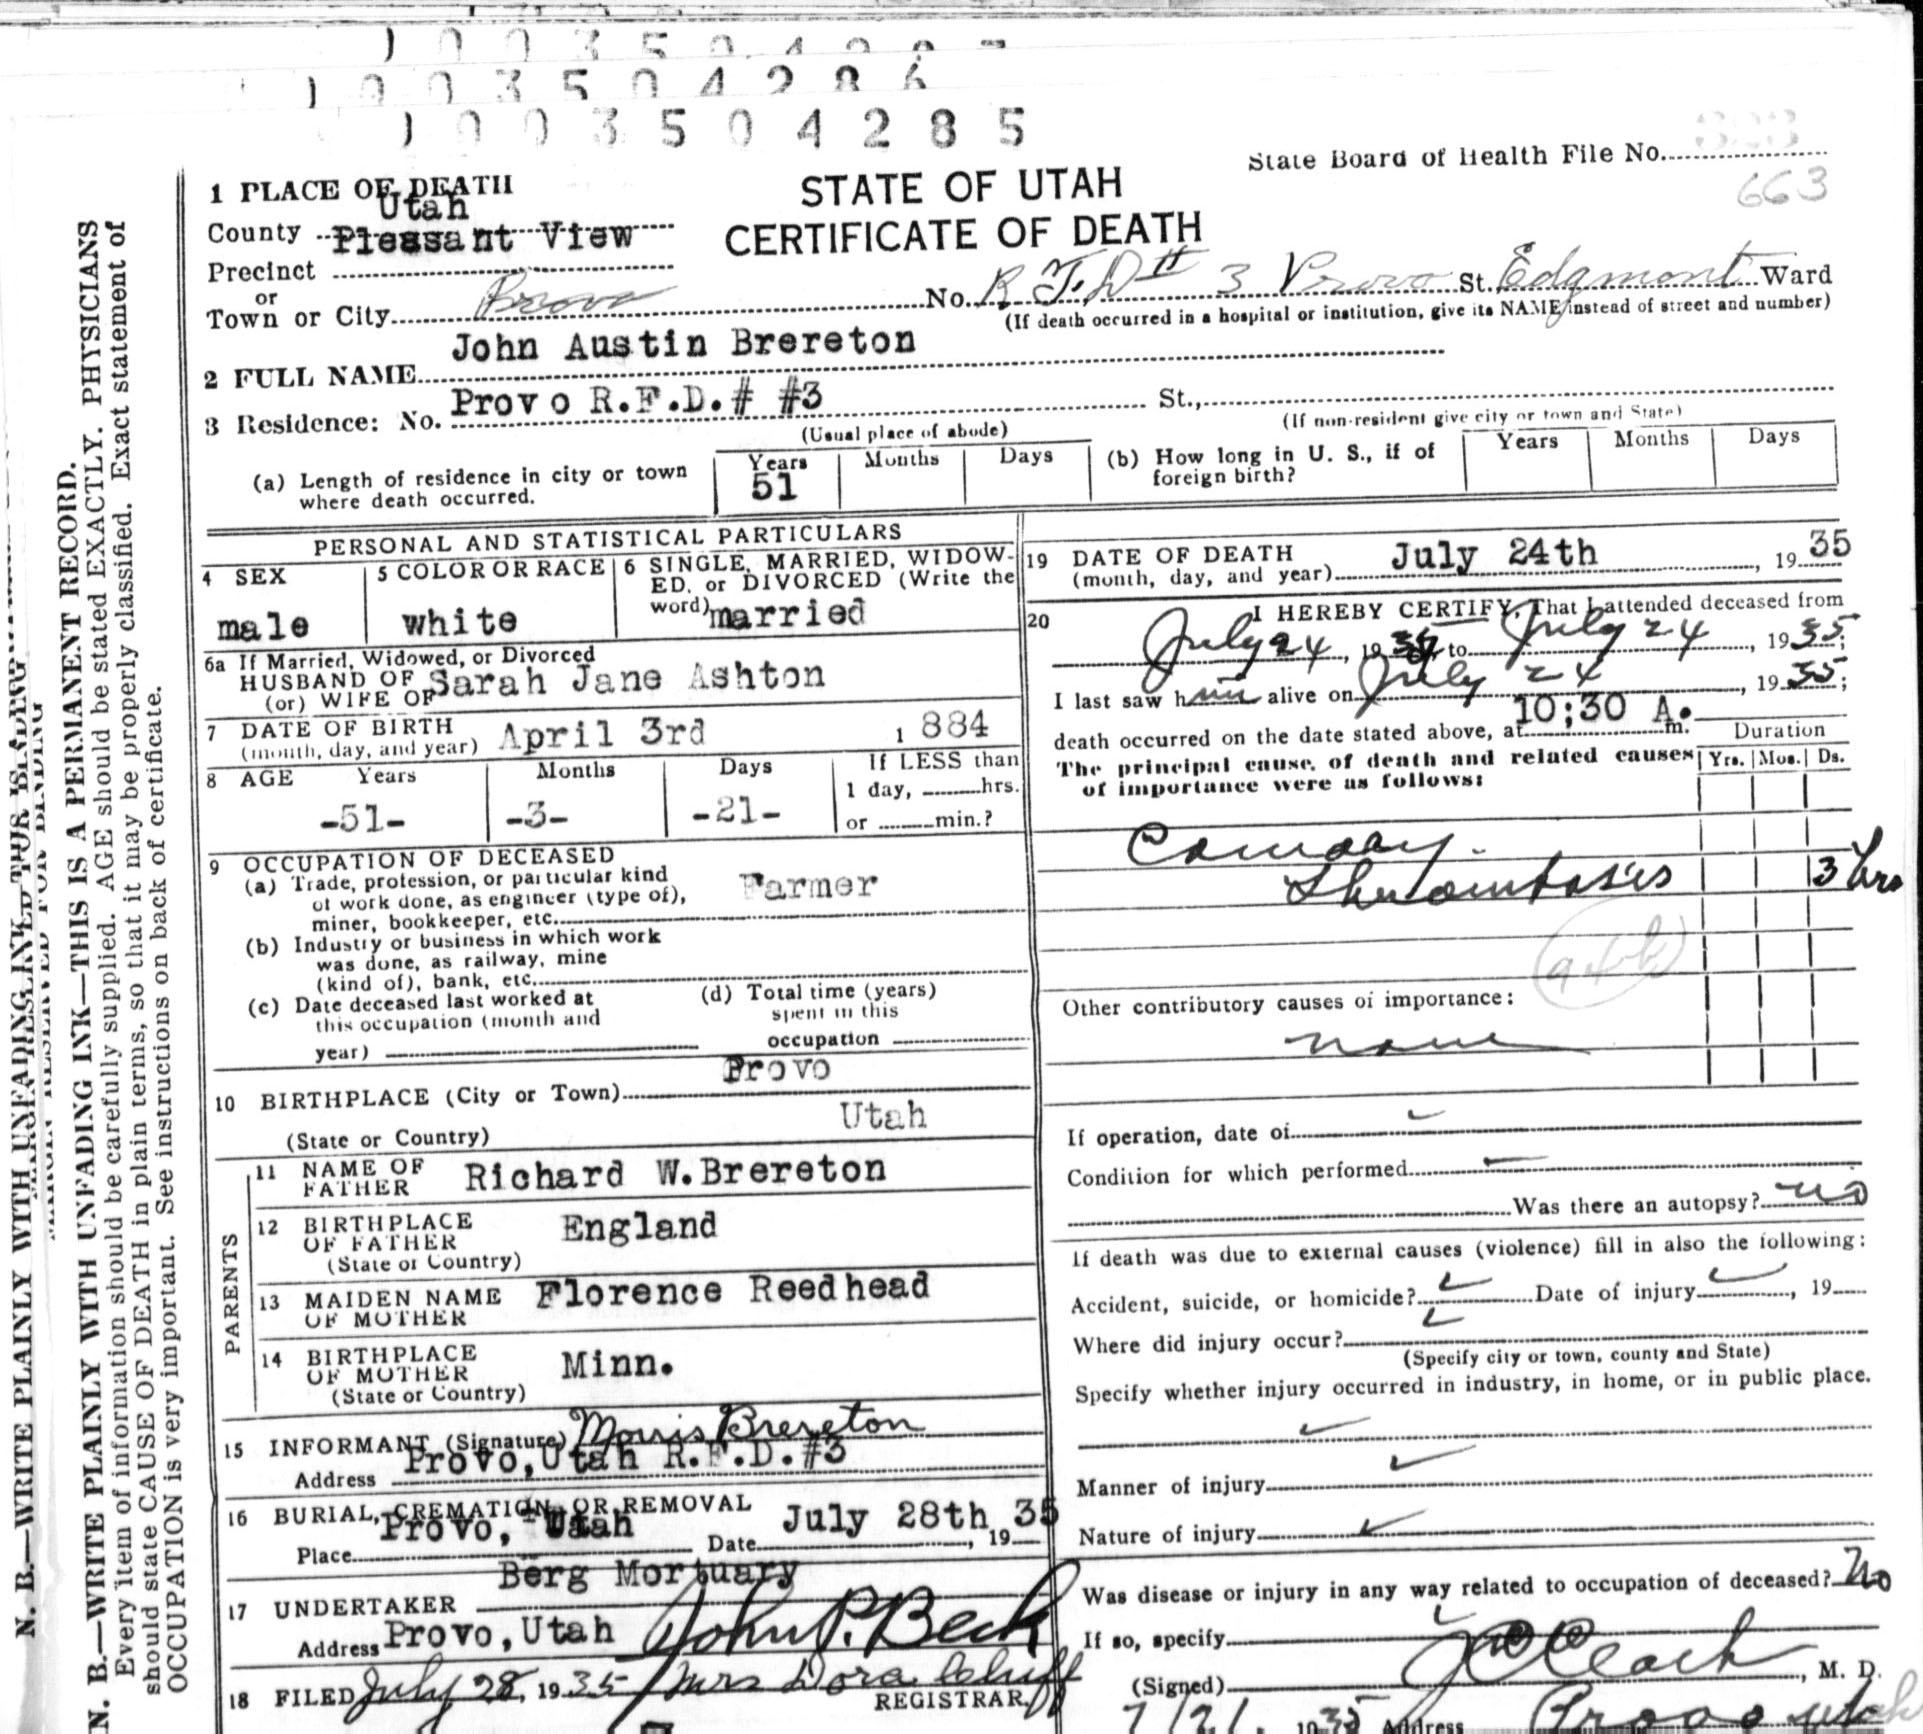 1003504286
1003504285
State Board of Health File No.
663
1 PLACE OF DEATH
STATE OF UTAH
CERTIFICATE OF DEATH
County Utah
Precinct Pleasant View
or
Town or City Provo No. R.F.D # 3 Provo St. Edgmont Ward
(If death occurred in a hospital or institution, give its NAME instead of street and number)
2 FULL NAME John Austin Brereton
3 Residence: No. Provo R.F.D.# #3 St.,
(Usual place of abode) (If non-resident give city or town and State)
(a) Length of residence in city or town where death occurred. Years 51 Months Days
(b) How long in U. S., if of foreign birth? Years Months Days
PERSONAL AND STATISTICAL PARTICULARS
4 SEX male
5 COLOR OR RACE white
6 SINGLE, MARRIED, WIDOW-
ED, or DIVORCED (Write the
word) married
6a If Married, Widowed, or Divorced
HUSBAND OF
(or) WIFE OF Sarah Jane Ashton
7 DATE OF BIRTH
(month, day, and year) April 3rd 1884
8 AGE Years Months Days If LESS than
1 day, hrs.
-51- -3- -21- or min.?
9 OCCUPATION OF DECEASED
(a) Trade, profession, or particular kind
of work done, as engineer (type of),
miner, bookkeeper, etc. Farmer
(b) Industry or business in which work
was done, as railway, mine
(kind of), bank, etc.
(c) Date deceased last worked at
this occupation (month and
year)
(d) Total time (years)
spent in this
occupation
10 BIRTHPLACE (City or Town) Provo
(State or Country) Utah
PARENTS
11 NAME OF
FATHER Richard W.Brereton
12 BIRTHPLACE
OF FATHER England
(State or Country)
13 MAIDEN NAME
OF MOTHER Florence Reedhead
14 BIRTHPLACE
OF MOTHER Minn.
(State or Country)
15 INFORMANT (Signature) Morris Brereton
Address Provo,Utah R.F.D.#3
16 BURIAL, CREMATION OR REMOVAL
Place Provo, Utah Date July 28th, 1935
17 UNDERTAKER Berg Mortuary
Address Provo,Utah John P. Beck
18 FILED July 28, 1935 Mrs Dora Cluff
REGISTRAR.
19 DATE OF DEATH
(month, day, and year) July 24th, 1935
20 I HEREBY CERTIFY, That I attended deceased from
July 24, 1935, to July 24, 1935;
I last saw him alive on July 24, 1935;
death occurred on the date stated above, at 10:30 A. m.
The principal cause of death and related causes
of importance were as follows:
Duration
Yrs. Mos. Ds.
3 hrs
Other contributory causes of importance:
none
If operation, date of
Condition for which performed
Was there an autopsy? no
If death was due to external causes (violence) fill in also the following:
Accident, suicide, or homicide? Date of injury , 19
Where did injury occur?
(Specify city or town, county and State)
Specify whether injury occurred in industry, in home, or in public place.
Manner of injury
Nature of injury
Was disease or injury in any way related to occupation of deceased? No
If so, specify
(Signed) , M. D.
1935 Address Provo Utah
N. B.—WRITE PLAINLY WITH UNFADING INK—THIS IS A PERMANENT RECORD.
Every item of information should be carefully supplied. AGE should be stated EXACTLY. PHYSICIANS
should state CAUSE OF DEATH in plain terms, so that it may be properly classified. Exact statement of
OCCUPATION is very important. See instructions on back of certificate.